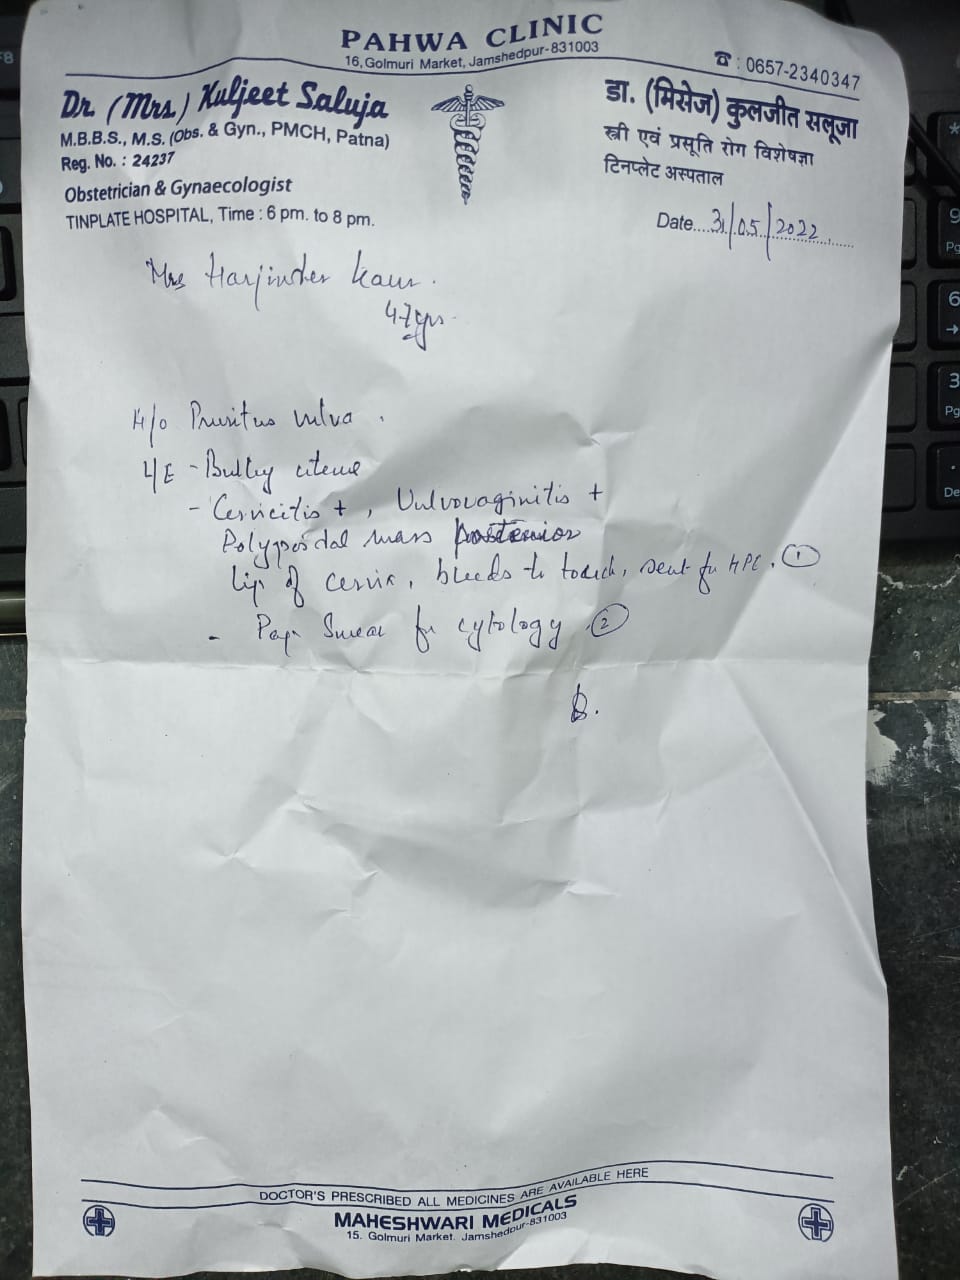 PAHWA CLINIC
16, Golmuri Market, Jamshedpur-831003
☎ : 0657-2340347
Dr. (Mrs.) Kuljeet Saluja
M.B.B.S., M.S. (Obs. & Gyn., PMCH, Patna)
Reg. No. : 24237
Obstetrician & Gynaecologist
TINPLATE HOSPITAL, Time : 6 pm. to 8 pm.
डा. (मिसेज) कुलजीत सलूजा
स्त्री एवं प्रसूति रोग विशेषज्ञा
टिनप्लेट अस्पताल
Date....31/05/2022
Mrs Harjinder Kaur.
47 yrs.
H/o Pruritus vulva.
L/E - Bulky uterus
- Cervicitis +, Vulvovaginitis +
Polypoidal mass posterior
lip of cervix, bleeds to touch, sent for HPE. ①
- Pap Smear for cytology ②
DOCTOR'S PRESCRIBED ALL MEDICINES ARE AVAILABLE HERE
MAHESHWARI MEDICALS
15. Golmuri Market. Jamshedpur-831003